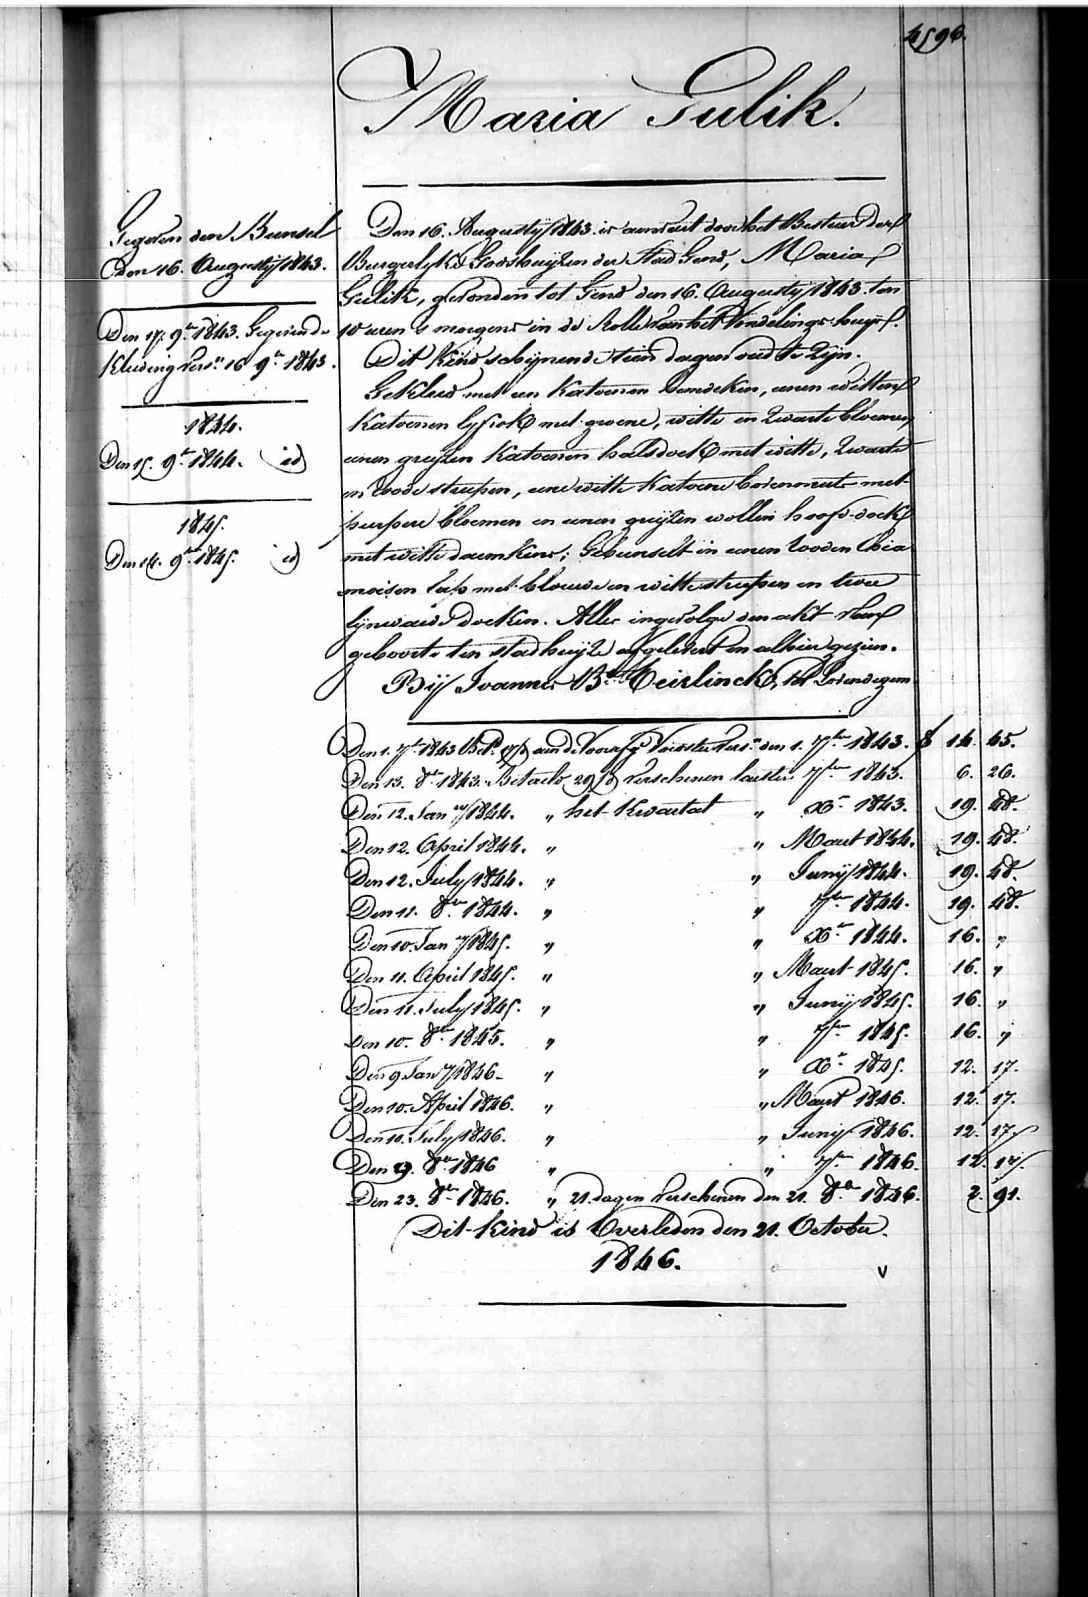 4596.
Maria Gulik.
Gegeven den Bunsel
den 16. Augusty 1843.
Den 17. 9.er 1843. Gegeven de
Kleeding vers.n 16 9.er 1843.
1844.
Den 15. 9.er 1844. id
1845.
Den 14. 9.er 1845. id
Den 16. Augusty 1843. is aenveirt door het Bestuer der
Burgerlyke Godshuyzen der Stad Gend, Maria
Gulik, gevonden tot Gend den 16. Augusty 1843. ten
10 uren 's morgens in de Rolle van het Vondelings-huys.
Dit Kind schijnende tien dagen oud te zijn.
Gekleed met een Katoenen hemdeken, eenen witten
Katoenen lyfrok met groene, witte en zwarte bloemen,
eenen greyzen Katoenen halsdoek met witte, zwarte
en roode streepen, eene witte Katoene bovenmuts met
purpere bloemen en eenen greyzen wollen hoofd-doek
met witte daemkens; Gebunselt in eenen rooden
lap met blauwe en witte streepen en twee
lynwaed doeken. Alles ingevolge den akt van
geboorte ten stadhuyze afgelevert en alhier gezien.
Bij Joannes B.te Meirlinck, tot Lovendegem
Den 1. 7.er 1843 Bet. aen de Voorsz. Voedster vers.n den 1. 7.er 1843. f 14. 45.
Den 13. 8.er 1843. Betaelt 29 verschenen laesten 7.er 1843. 6. 26.
Den 12. Jan.ry 1844. „ het Kwartael „ X.er 1843. 19. 48.
Den 12. April 1844. „ „ Maert 1844. 19. 48.
Den 12. July 1844. „ „ Junij 1844. 19. 48.
Den 11. 8.er 1844. „ „ 7.er 1844. 19. 48.
Den 10. Jan.ry 1845. „ „ X.er 1844. 16. „
Den 11. April 1845. „ „ Maert 1845. 16. „
Den 11. July 1845. „ „ Junij 1845. 16. „
Den 10. 8.er 1845. „ „ 7.er 1845. 16. „
Den 9. Jan.ry 1846. „ „ X.er 1845. 12. 17.
Den 10. April 1846. „ „ Maert 1846. 12. 17.
Den 10. July 1846. „ „ Junij 1846. 12. 17.
Den 9. 8.er 1846 „ „ 7.er 1846. 12. 17.
Den 23. 8.er 1846. „ 21. dagen verschenen den 21. 8.er 1846. 2. 91.
Dit Kind is Overleden den 21. October
1846.
v